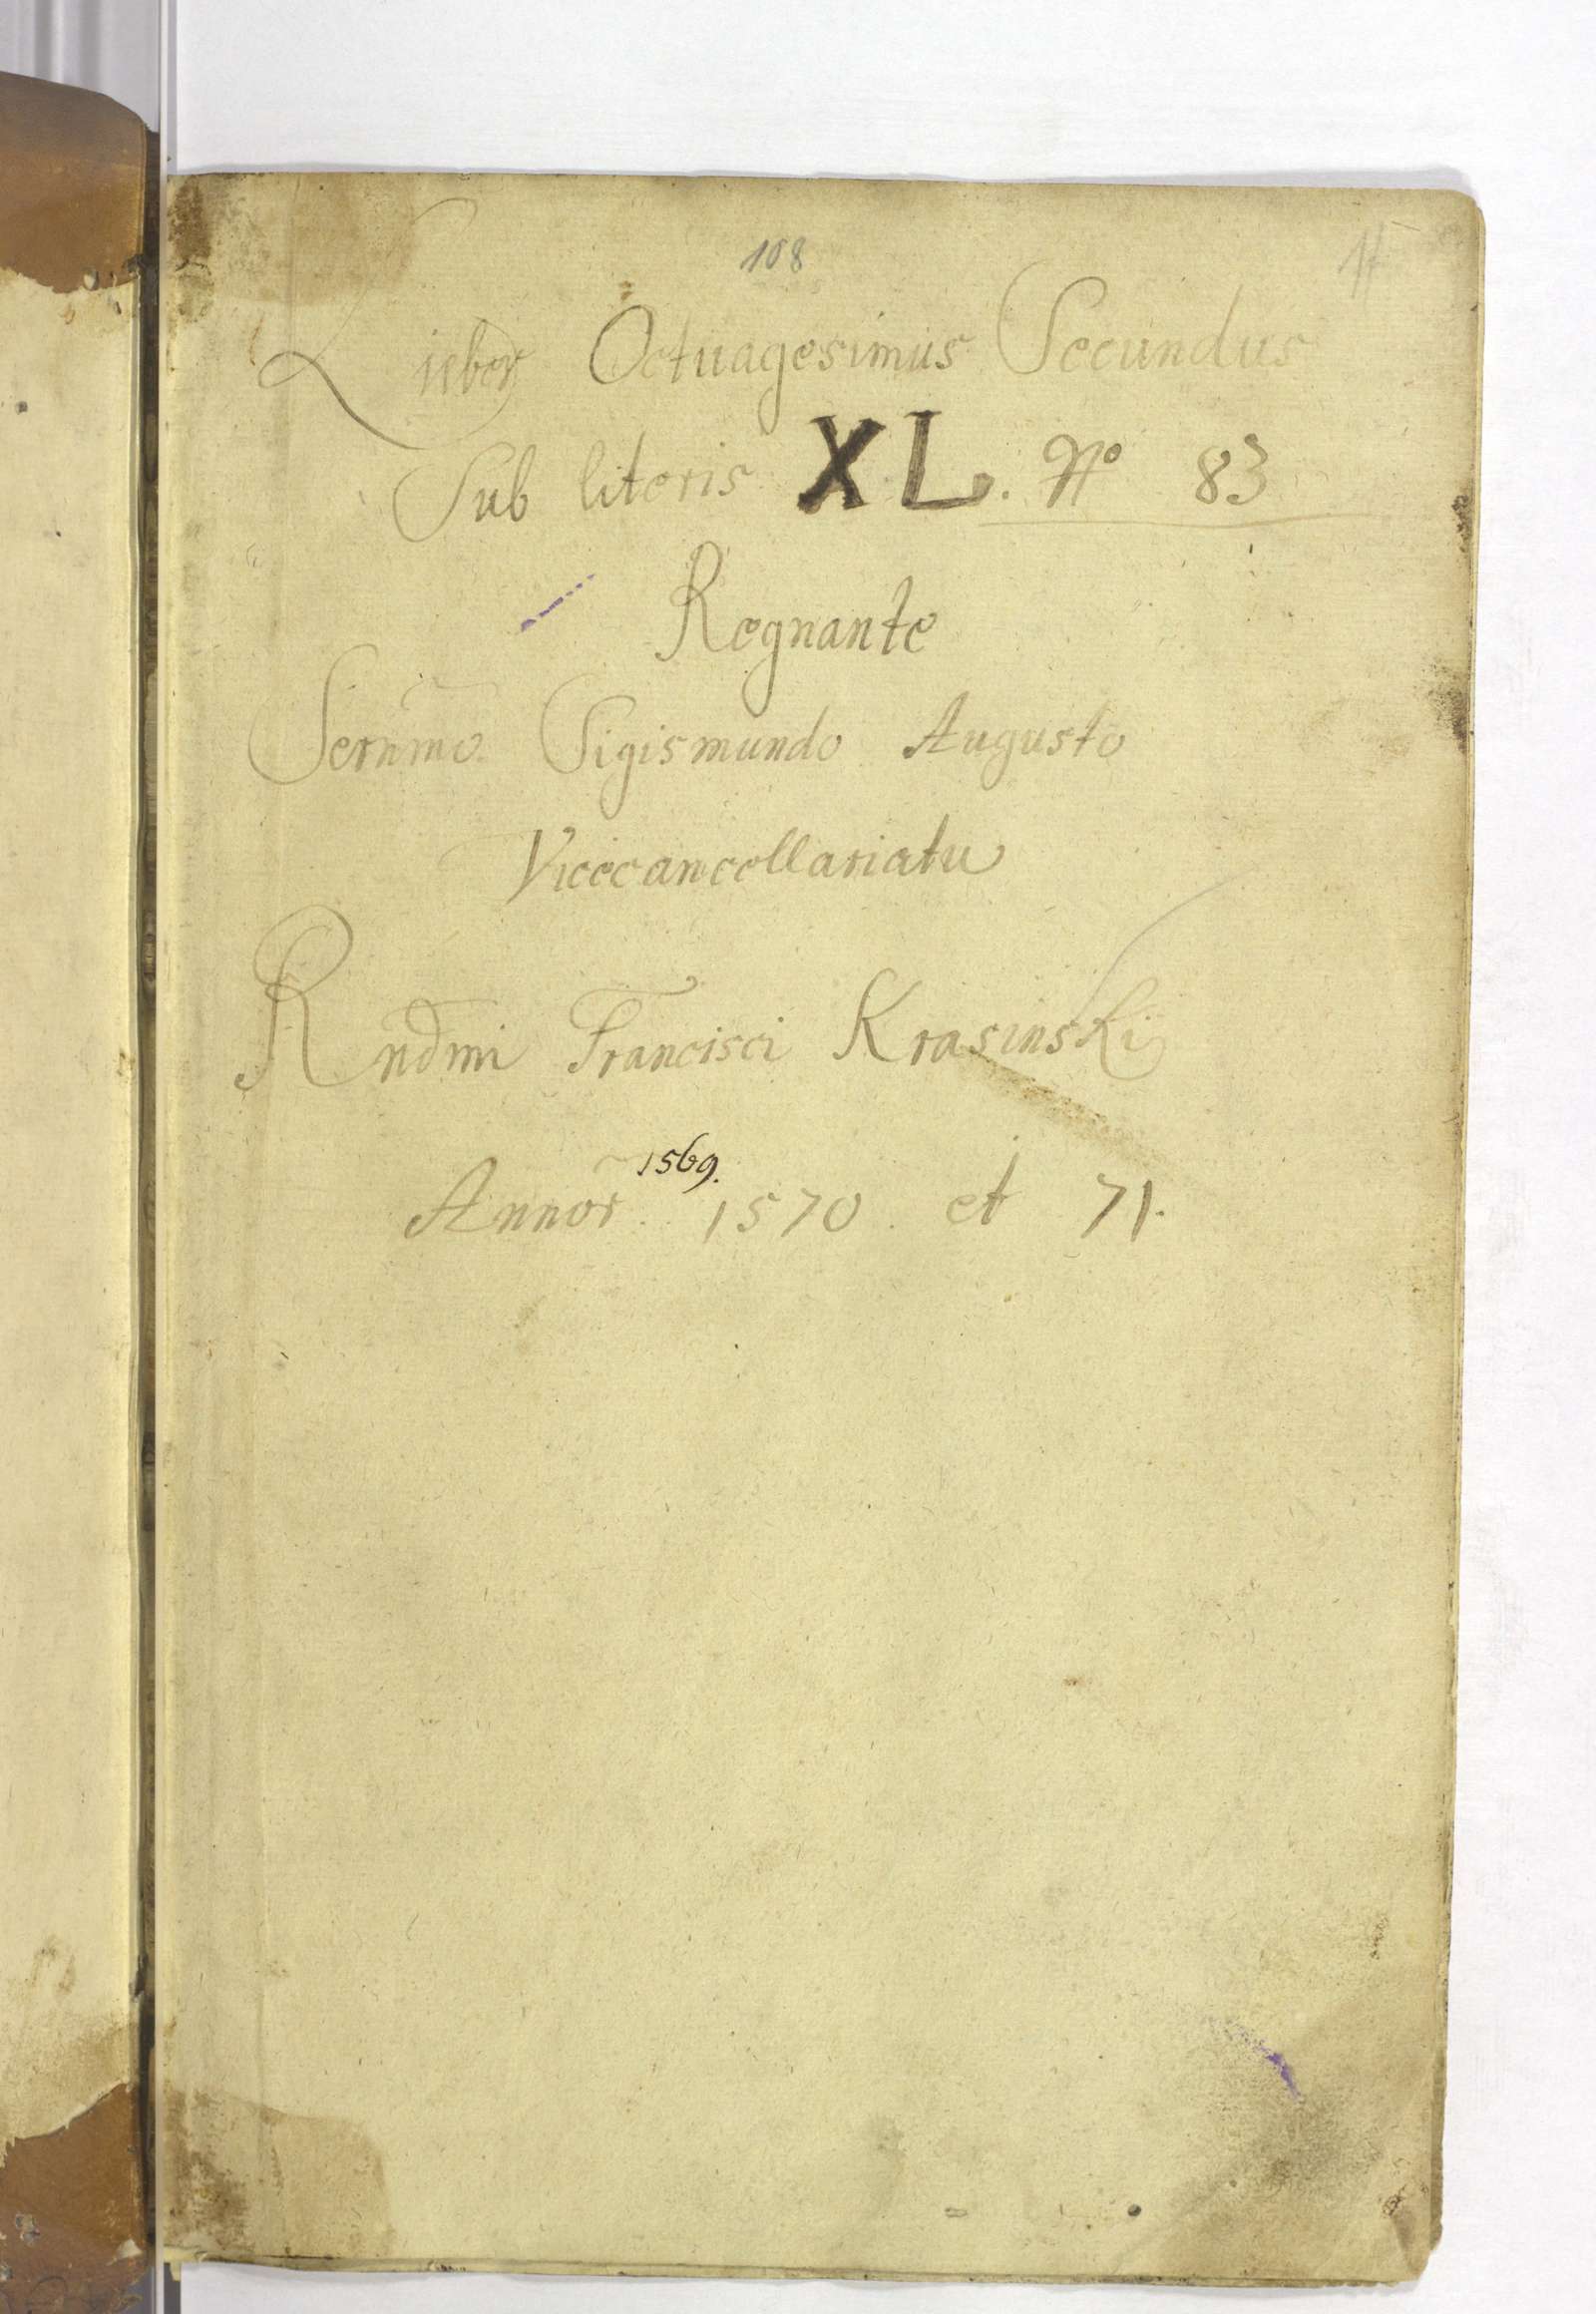 108
Lieber Octuagesimus Secundus
Sub literis XL. No 83
Regnante
Sernmo Sigismundo Augusto
Vicecancellariatu
Rndmi Francisci Krasinskij
1569.
Annor 1570 et 71.